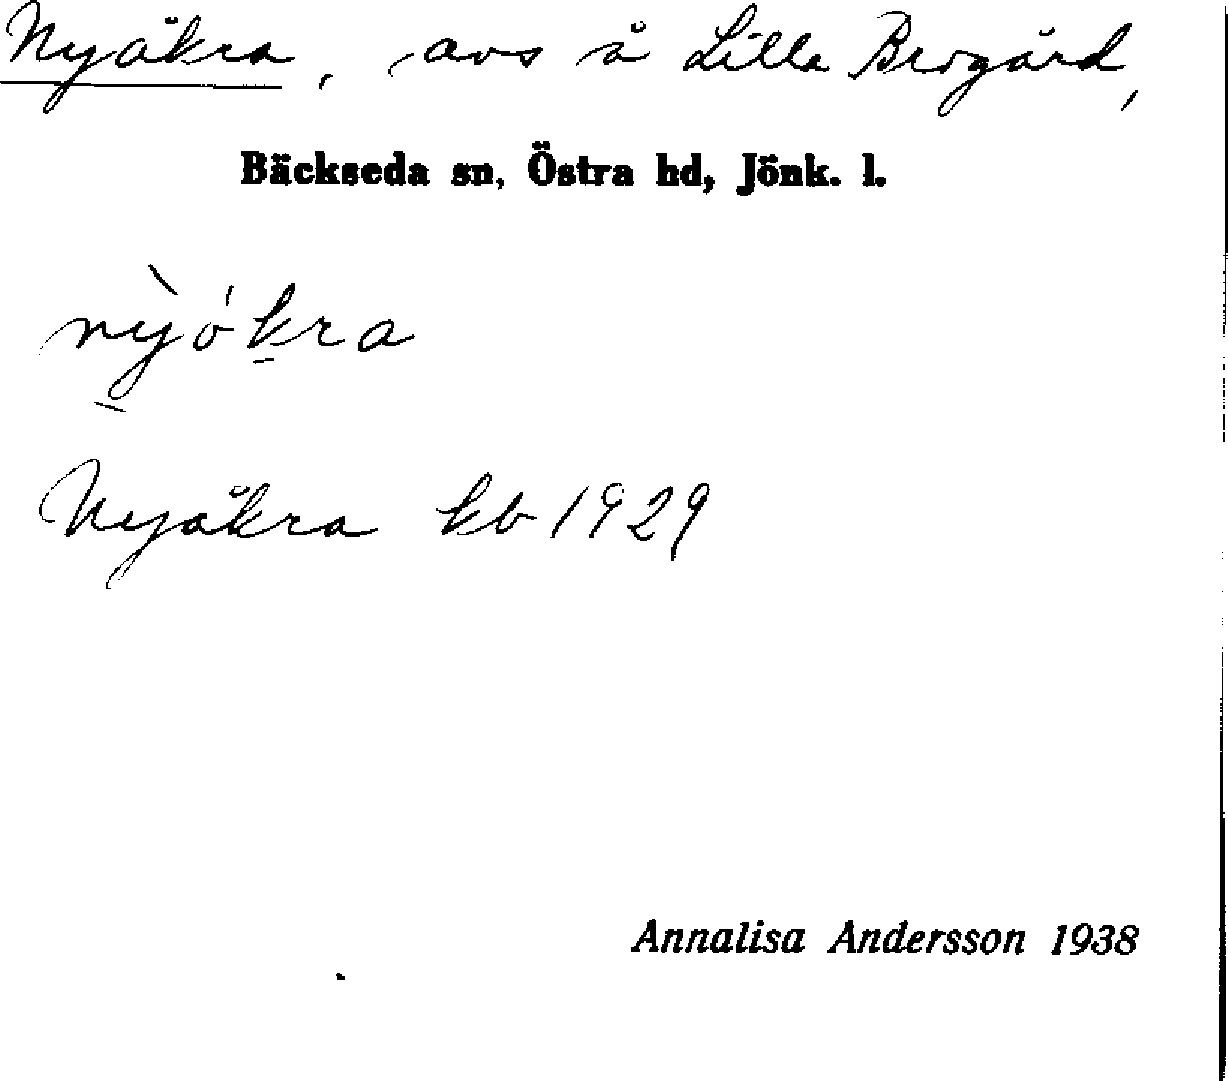 Nyåkra, avs å Lilla Brogård,
Bäckseda sn, Östra hd, Jönk. l.
nỳókra
Nyåkra kb 1929
Annalisa Andersson 1938